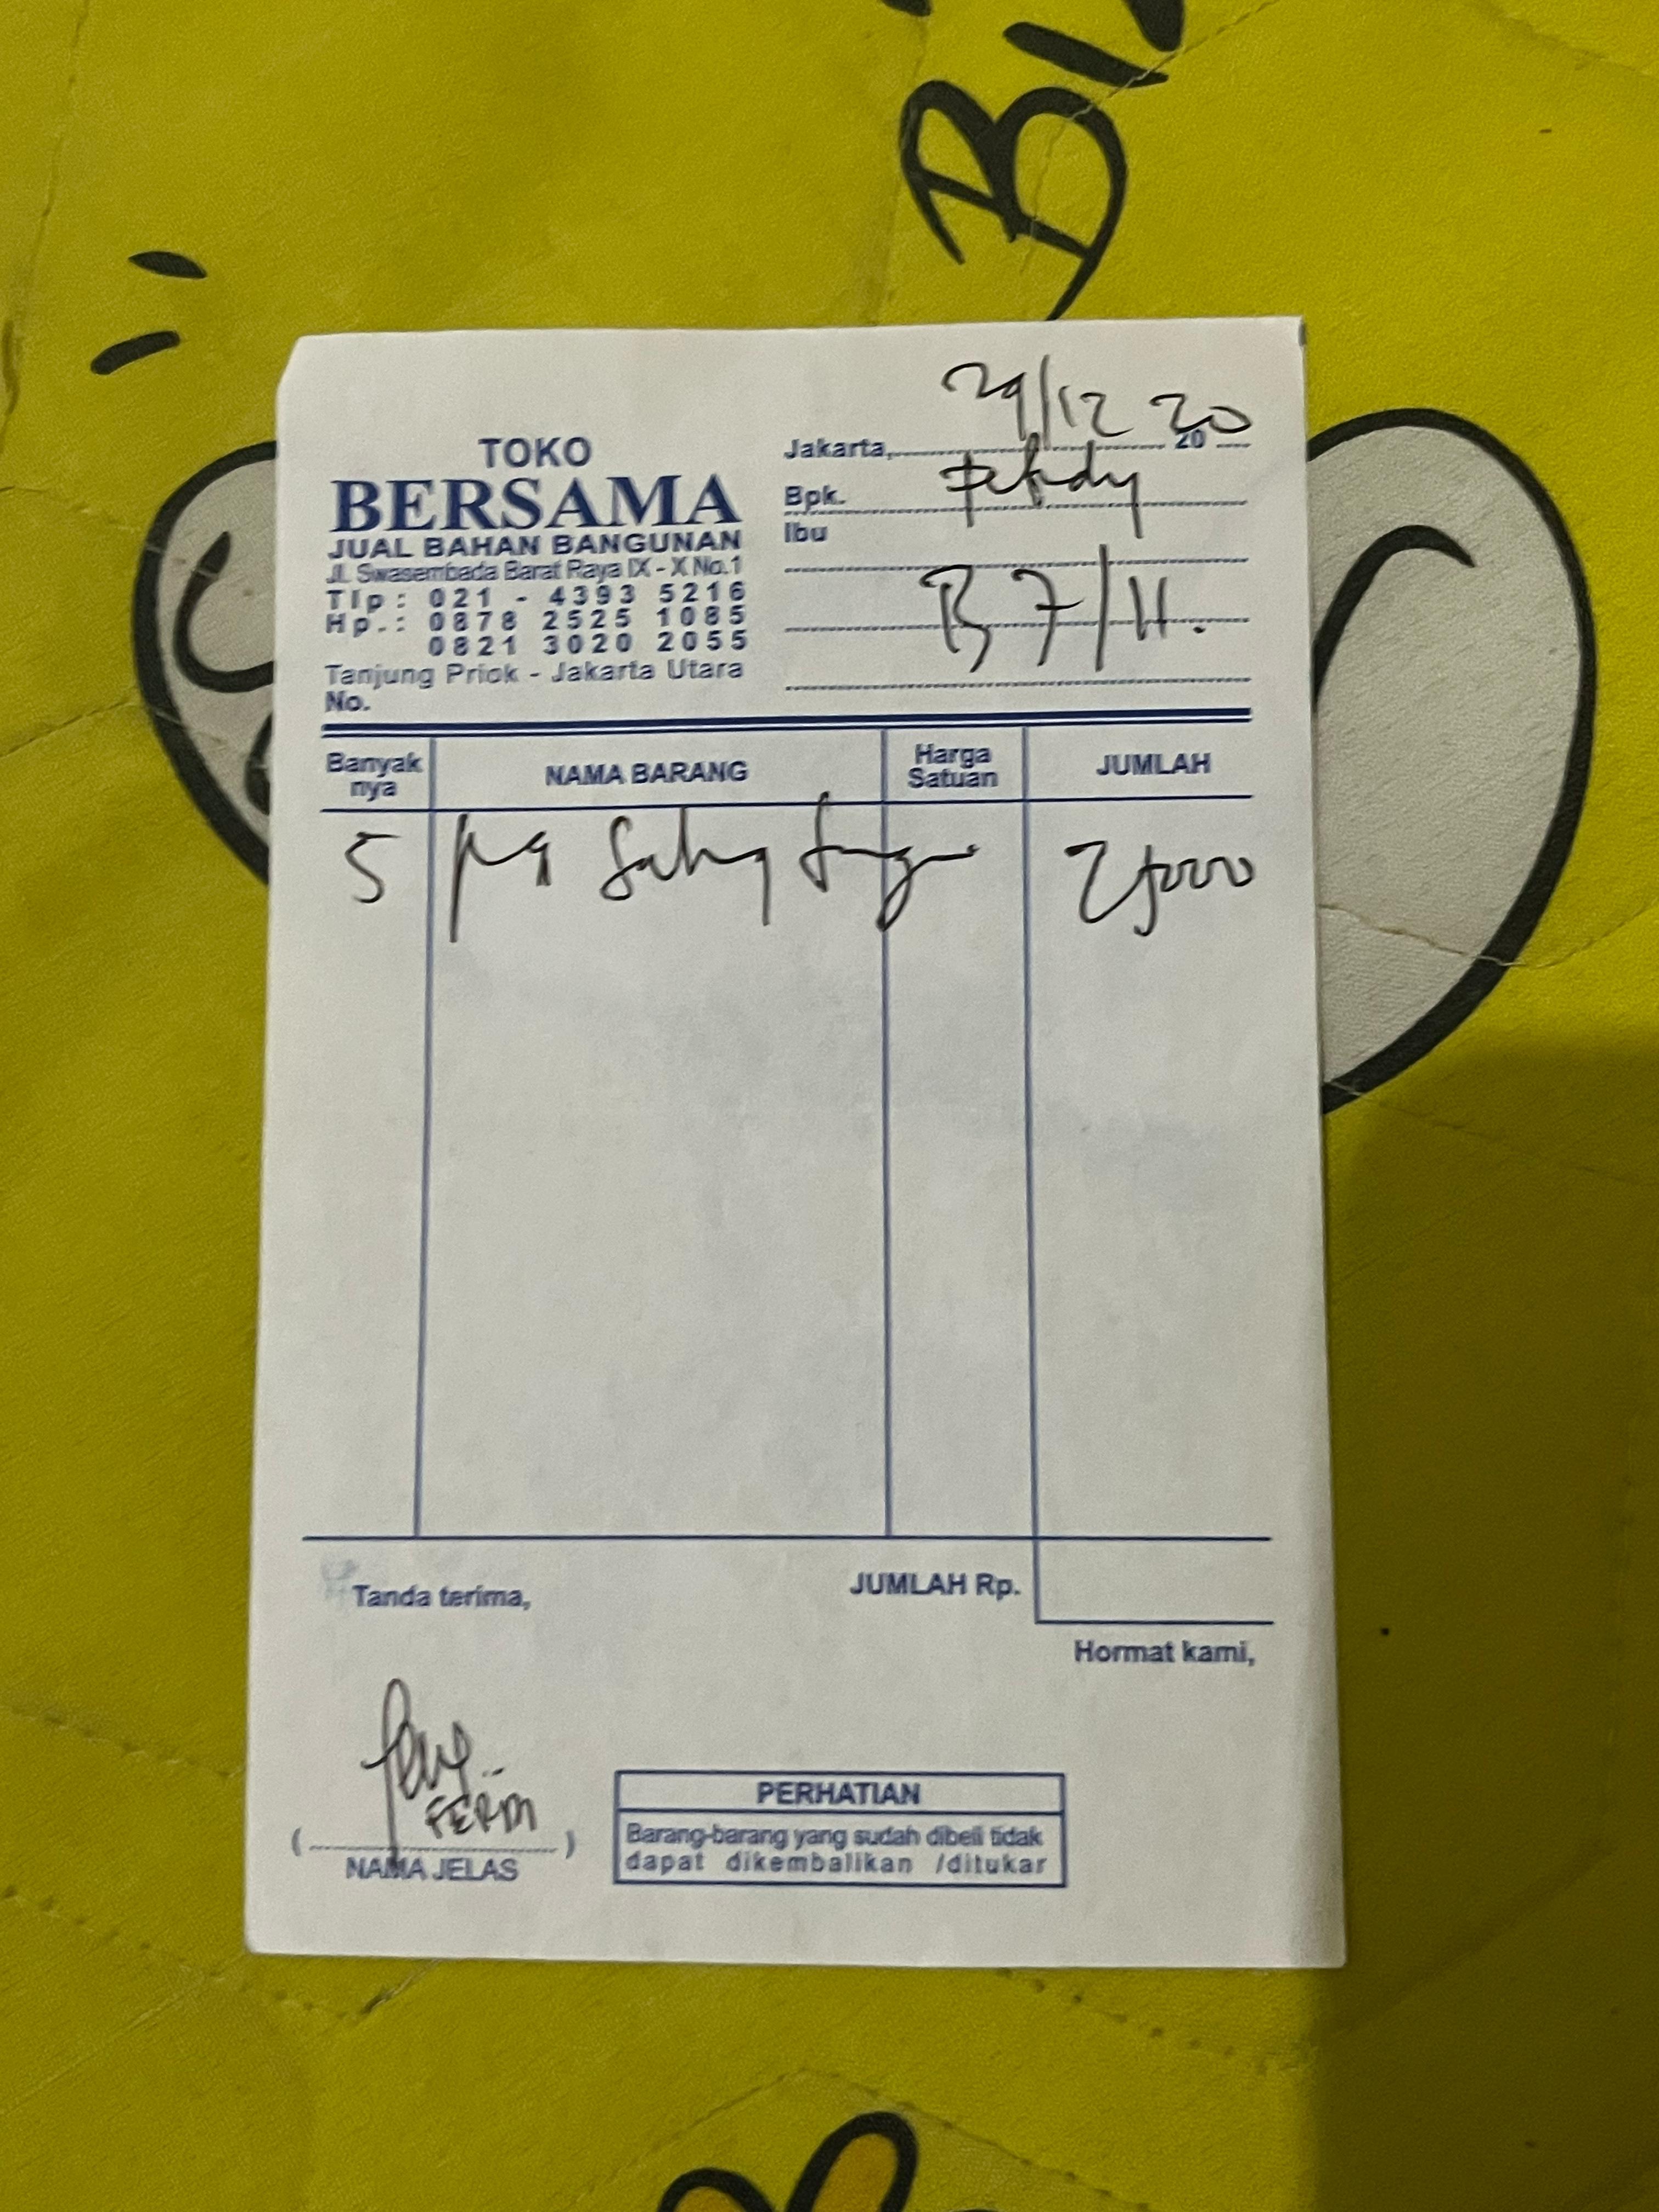 29/12 20
TOKO
BERSAMA
JUAL BAHAN BANGUNAN
Jl. Swasembada Barat Raya IX - X No.1
Tlp : 021 - 4393 5216
Hp. : 0878 2525 1085
0821 3020 2055
Tanjung Priok - Jakarta Utara
No.
Jakarta, 20
Bpk.
Ibu
B 7/H.
Banyak
nya
NAMA BARANG
Harga
Satuan
JUMLAH
5
25000
Tanda terima,
JUMLAH Rp.
Hormat kami,
FERDI
( )
NAMA JELAS
PERHATIAN
Barang-barang yang sudah dibeli tidak
dapat dikembalikan /ditukar